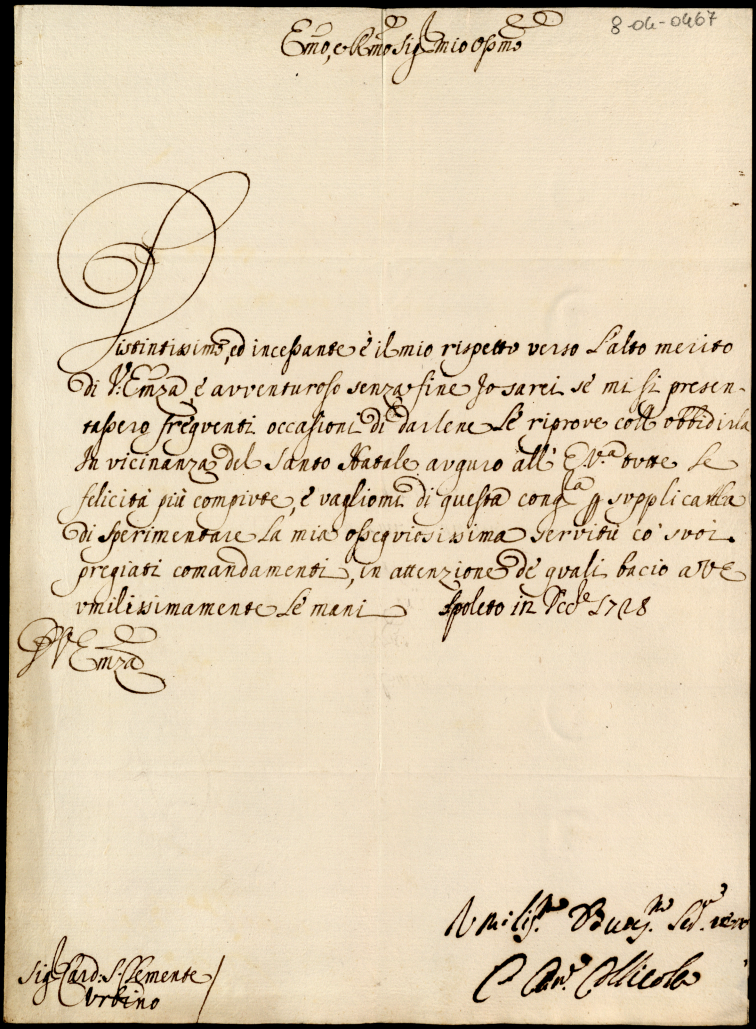 8-04-0467
Emo, e Rmo Sig. mio Ossmo
Distintissimo, ed incessante è il mio rispetto verso l'alto merito
di V. Emza, è avventuroso senza fine Io sarei sè mi si presen-
tassero freqventi occasioni di darlene le riprove coll' obbidirla
In vicinanza del Santo Natale auguro all' E. Va tvtte le
felicità più compivte, è vagliomi di questa congla p svpplicarla
di sperimentare la mia osseqviosissima servitù co' svoi
pregiati comandamenti, in attenzione de qvali bacio a VE
vmilissimamente le mani Spoleto in Xcce 1728
D V Emza
Vmiliss.mo Ser.re vero
Sig. Card: S. Clemente
Vrbino
C Collicola